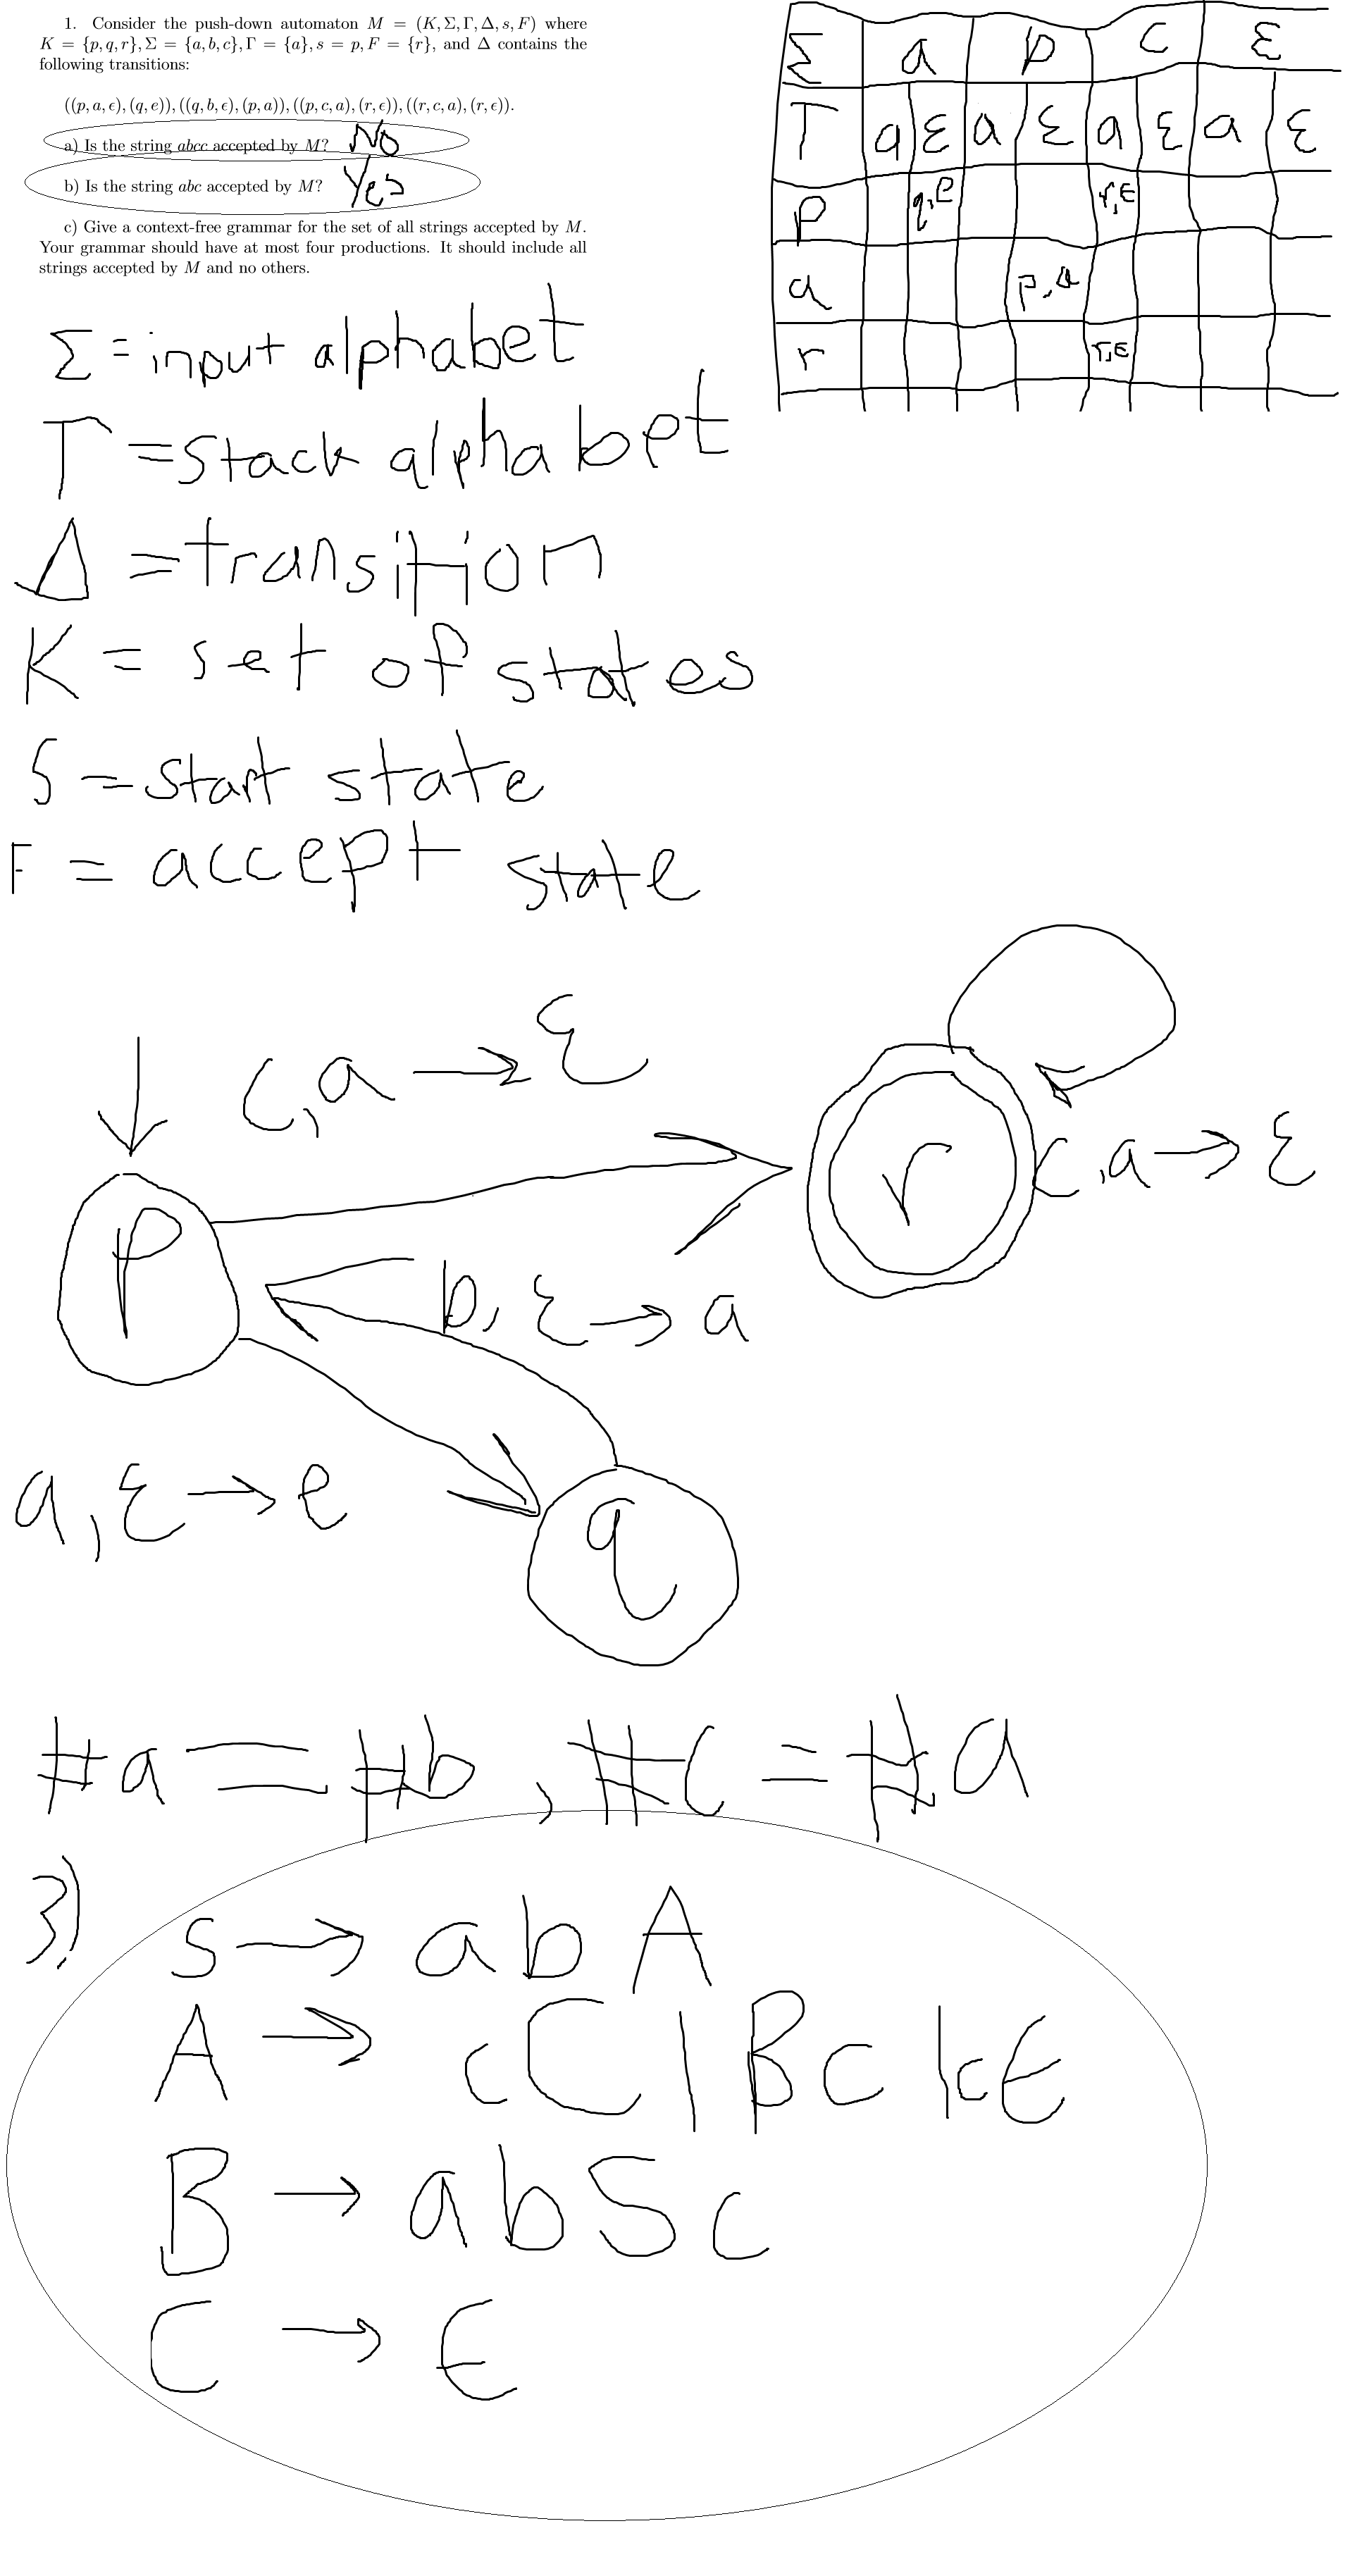 1. Consider the push-down automaton M = (K, Σ, Γ, Δ, s, F) where
K = {p, q, r}, Σ = {a, b, c}, Γ = {a}, s = p, F = {r}, and Δ contains the
following transitions:
((p, a, ϵ), (q, e)), ((q, b, ϵ), (p, a)), ((p, c, a), (r, ϵ)), ((r, c, a), (r, ϵ)).
a) Is the string abcc accepted by M? No
b) Is the string abc accepted by M? Yes
c) Give a context-free grammar for the set of all strings accepted by M.
Your grammar should have at most four productions. It should include all
strings accepted by M and no others.
Σ a p c ε
T a ε a ε a ε a ε
p q,e r,ε
q p,a
r r,ε
Σ = input alphabet
T = stack alphabet
Δ = transition
K = set of states
S = start state
F = accept state
c, a → ε
p
r
c, a → ε
b, ε → a
a, ε → e
q
#a = #b, #c = #a
3)
S → abA
A → cC | Bc | cϵ
B → abSc
C → ϵ